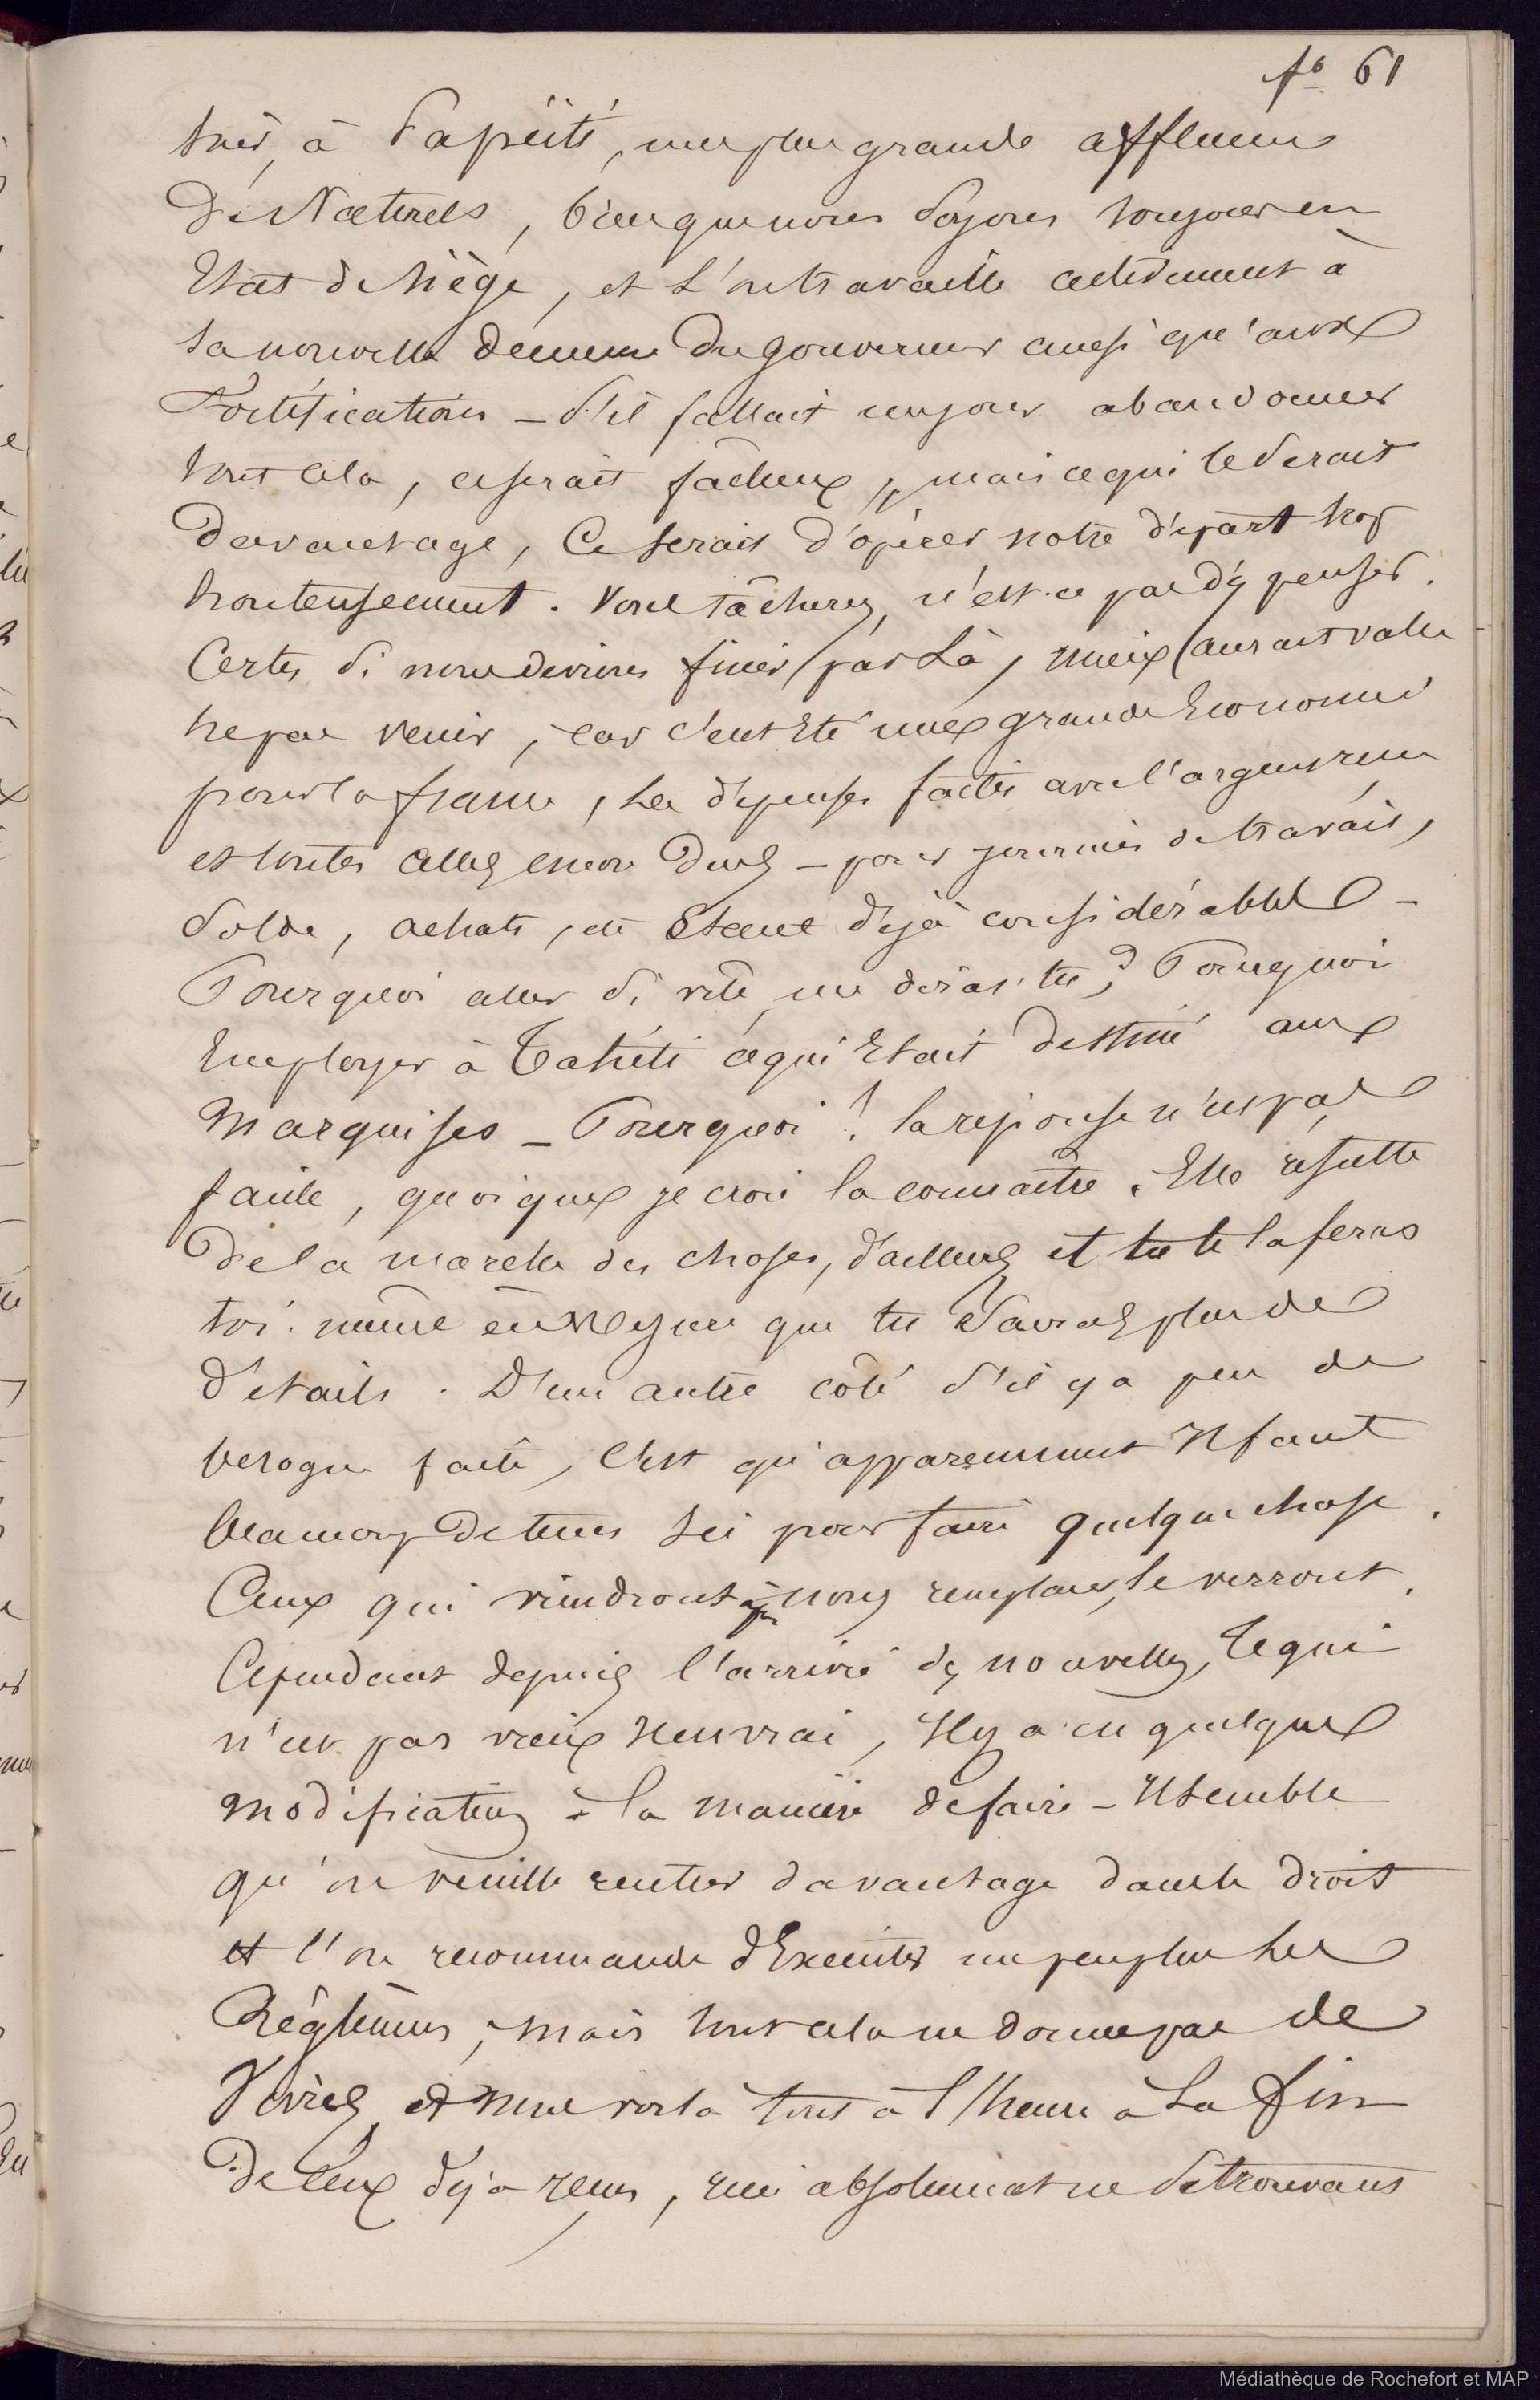 fo 61
à Papéiti, une plus grande affluence
De Naturels, bien que nous soyons toujours en
Etat de siège, et l'on travaille activement à
la nouvelle demeure du gouverneur ainsi qu'aux
Fortifications - s'il fallait un jour abandonner
tout cela, ce serait fâcheux, mais ce qui le serait
Davantage, Ce serait d'opérer notre départ trop
honteusement. Vous tâcherez, n'est-ce pas d'y penser.
Certes si nous devions finir par là, mieux aurait vallu
ne pas venir, car c'eut Eté une grande Economie
pour la france, les dépenses faites avec l'argent reçu
et toutes celles encore Dues - pour journées de travail,
Solde, achats, etc Etant déjà considérables -
Pourquoi aller si vite me diras-tu? Pourquoi
Employer à Tahiti ce qui Etait destiné aux
Marquises - Pourquoi! la réponse n'est pas
facile, quoique je crois la connaître. Elle résulte
De la marche des choses, d'ailleurs et tu te la feras
toi-même à mesure que tu sauras plus de
détails. D'un autre coté s'il y a peu de
besogne faite, C'est qu'apparemment Il faut
beaucoup de tems Ici pour faire quelque chose.
Ceux qui viendront après nous remplacer, le verront.
Cependant depuis l'arrivée des nouvelles, Ce qui
n'est pas vieux Il est vrai, Il y a eu quelques
modifications à la manière de faire - Il semble
qu'on veuille rentrer davantage dans le droit
et l'on recommande d'Exécuter un peu plus les
Réglemens, mais tout cela ne donne pas de
Vivres et nous voilà tout à l'heure à La fin
De ceux déjà reçus, rien absolument ne se trouvant